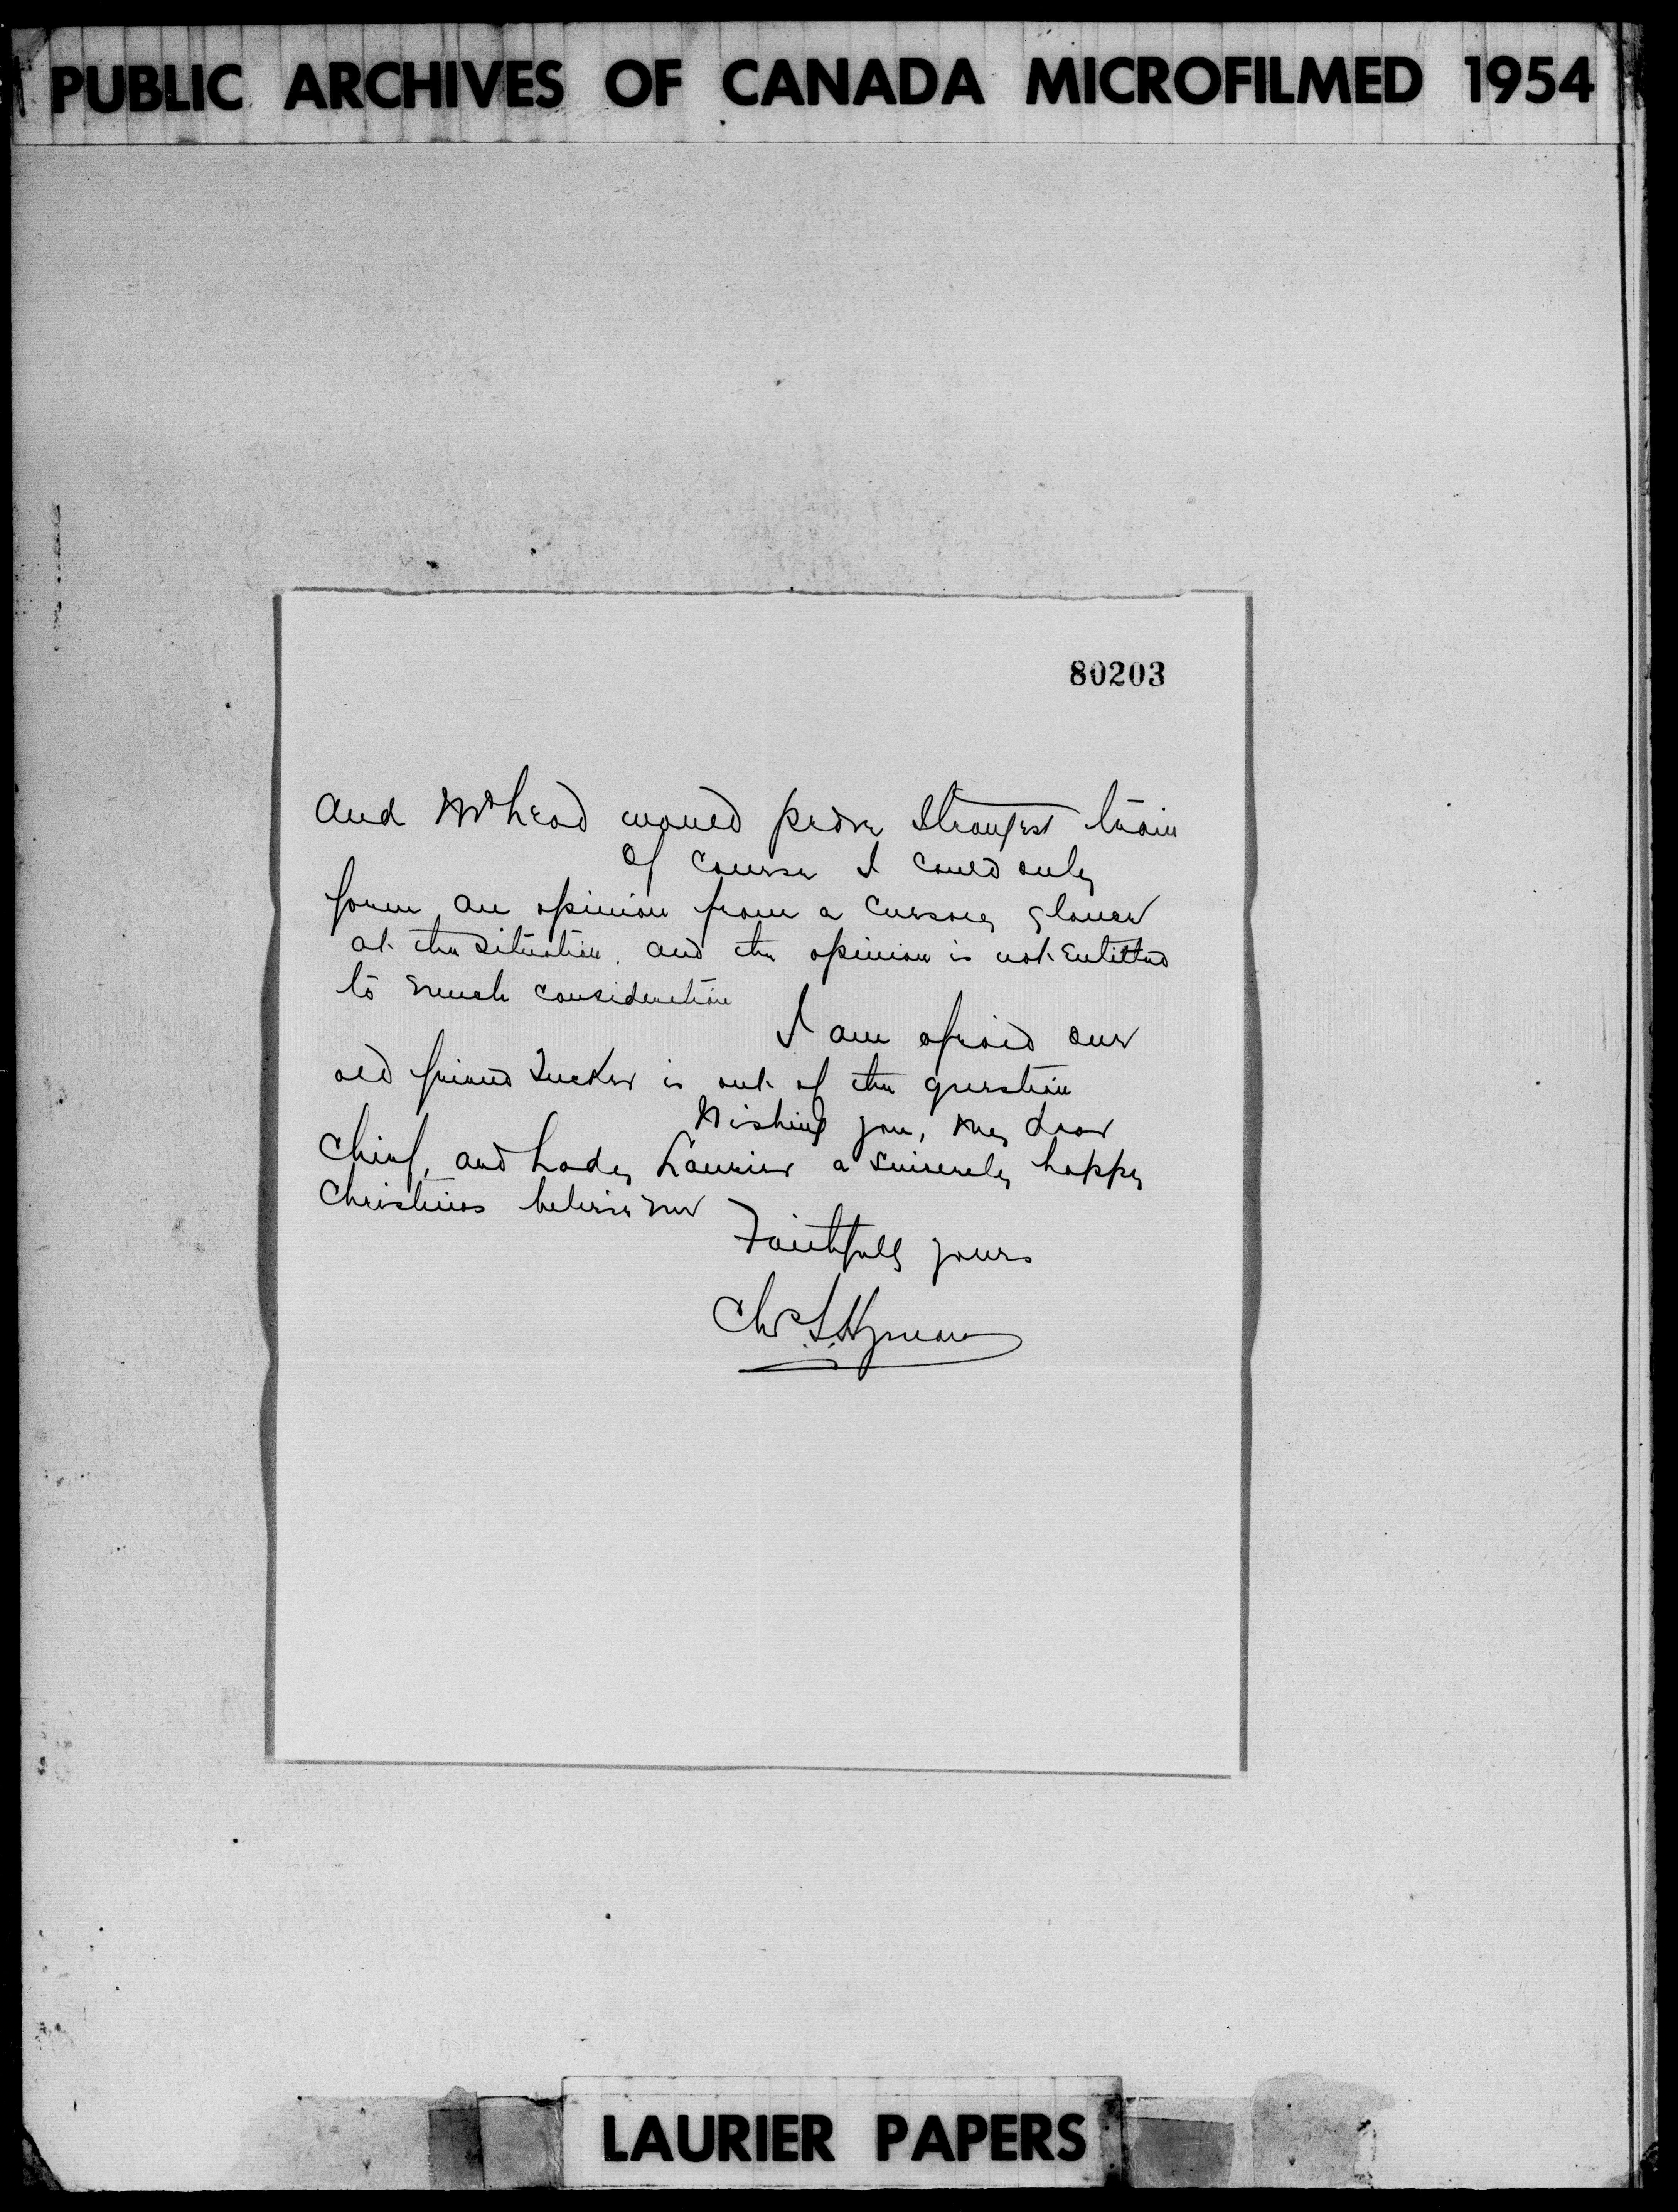 PUBLIC ARCHIVES OF CANADA MICROFILMED 1954
80203
and would prove strongest team
Of course I could only
form an opinion from a cursory glance
at the situation, and the opinion is not entitled
to much consideration
I am afraid our
old friend Tucker is out of the question
Wishing you, my dear
Chief, and Lady Laurier a sincerely happy
Christmas believe me
Faithfully yours
Chs. S. Hyman
LAURIER PAPERS